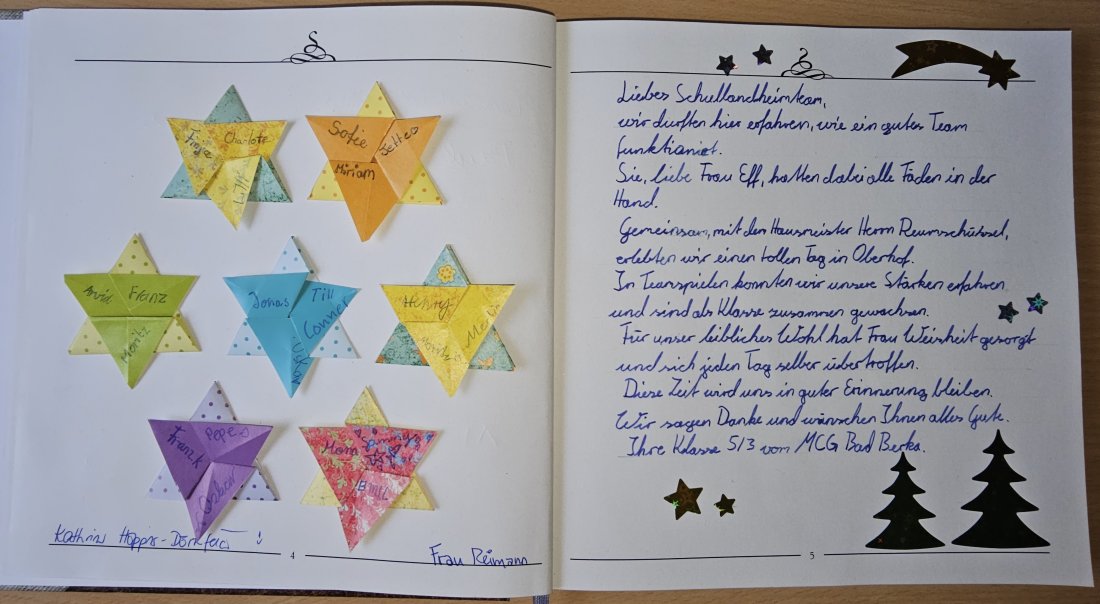 Freya Charlotte
Sofie Jette
Miriam
Arvid Franz
Moritz
Jonas Till
Connor
Henry
Moritz
Pepe
Frau Reimann
4
Liebes Schullandheimteam,
wir durften hier erfahren, wie ein gutes Team
funktioniert.
Sie, liebe Frau Eff, hatten dabei alle Fäden in der
Hand.
Gemeinsam, mit dem Hausmeister Herrn Reumschüssel,
erlebten wir einen tollen Tag in Oberhof.
In Teamspielen konnten wir unsere Stärken erfahren
und sind als Klasse zusammen gewachsen.
Für unser leibliches Wohl hat Frau Weisheit gesorgt
und sich jeden Tag selber übertroffen.
Diese Zeit wird uns in guter Erinnerung bleiben.
Wir sagen Danke und wünschen Ihnen alles Gute.
Ihre Klasse 5/3 vom MCG Bad Berka.
5